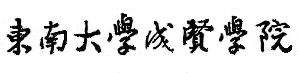 東南大學成賢學院